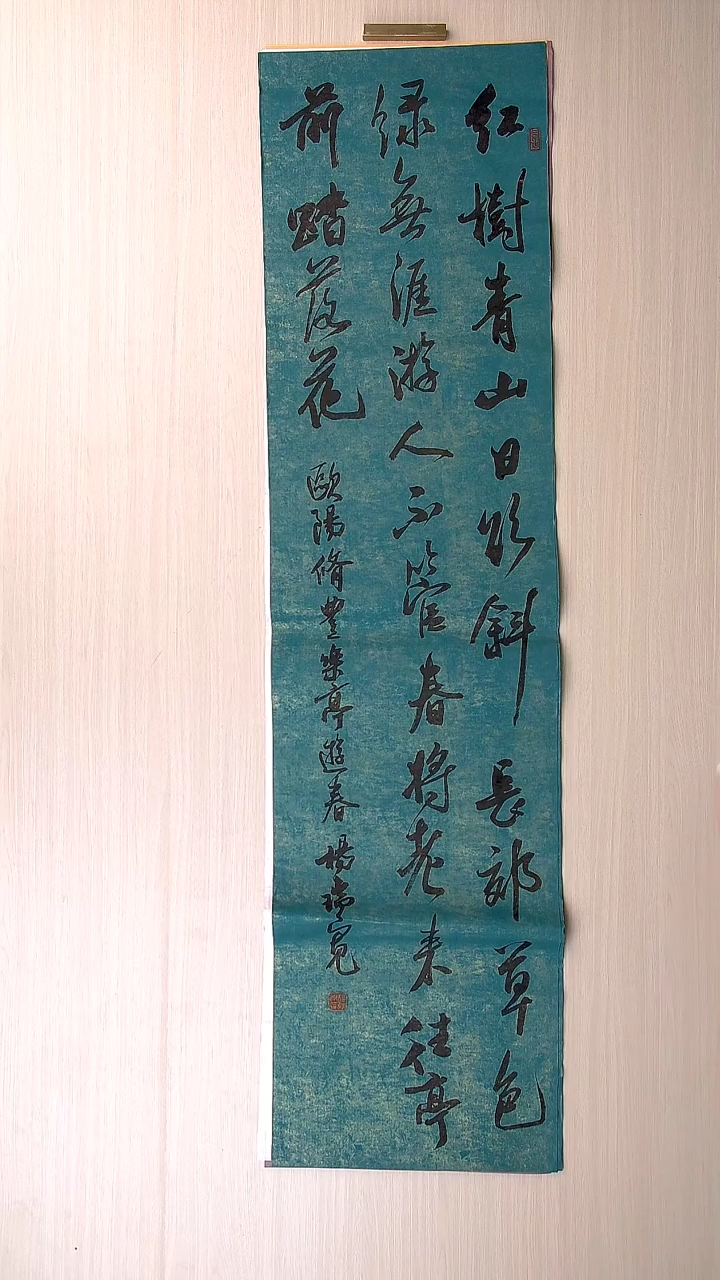 红樹青山日欲斜長郊草色
绿無涯游人不管春將老来往亭
前踏落花
歐陽脩豊樂亭遊春楊瑞寬